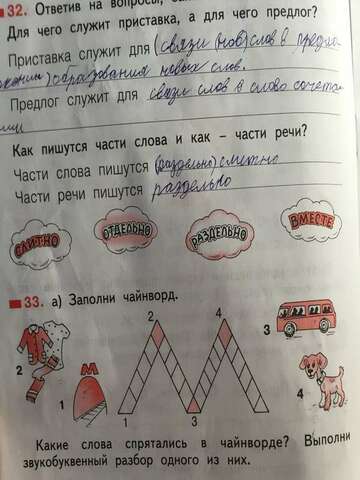 32. Ответив на вопросы,
Для чего служит приставка, а для чего предлог?
Приставка служит для (связи (нов) слов в предло
жении) образования новых слов.
Предлог служит для связи слов в слово сочета
нии
Как пишутся части слова и как – части речи?
Части слова пишутся (раздельно) слитно
Части речи пишутся раздельно
СЛИТНО
ОТДЕЛЬНО
РАЗДЕЛЬНО
ВМЕСТЕ
33. а) Заполни чайнворд.
2
4
3
2
1
1
3
4
Какие слова спрятались в чайнворде? Выполни
звукобуквенный разбор одного из них.